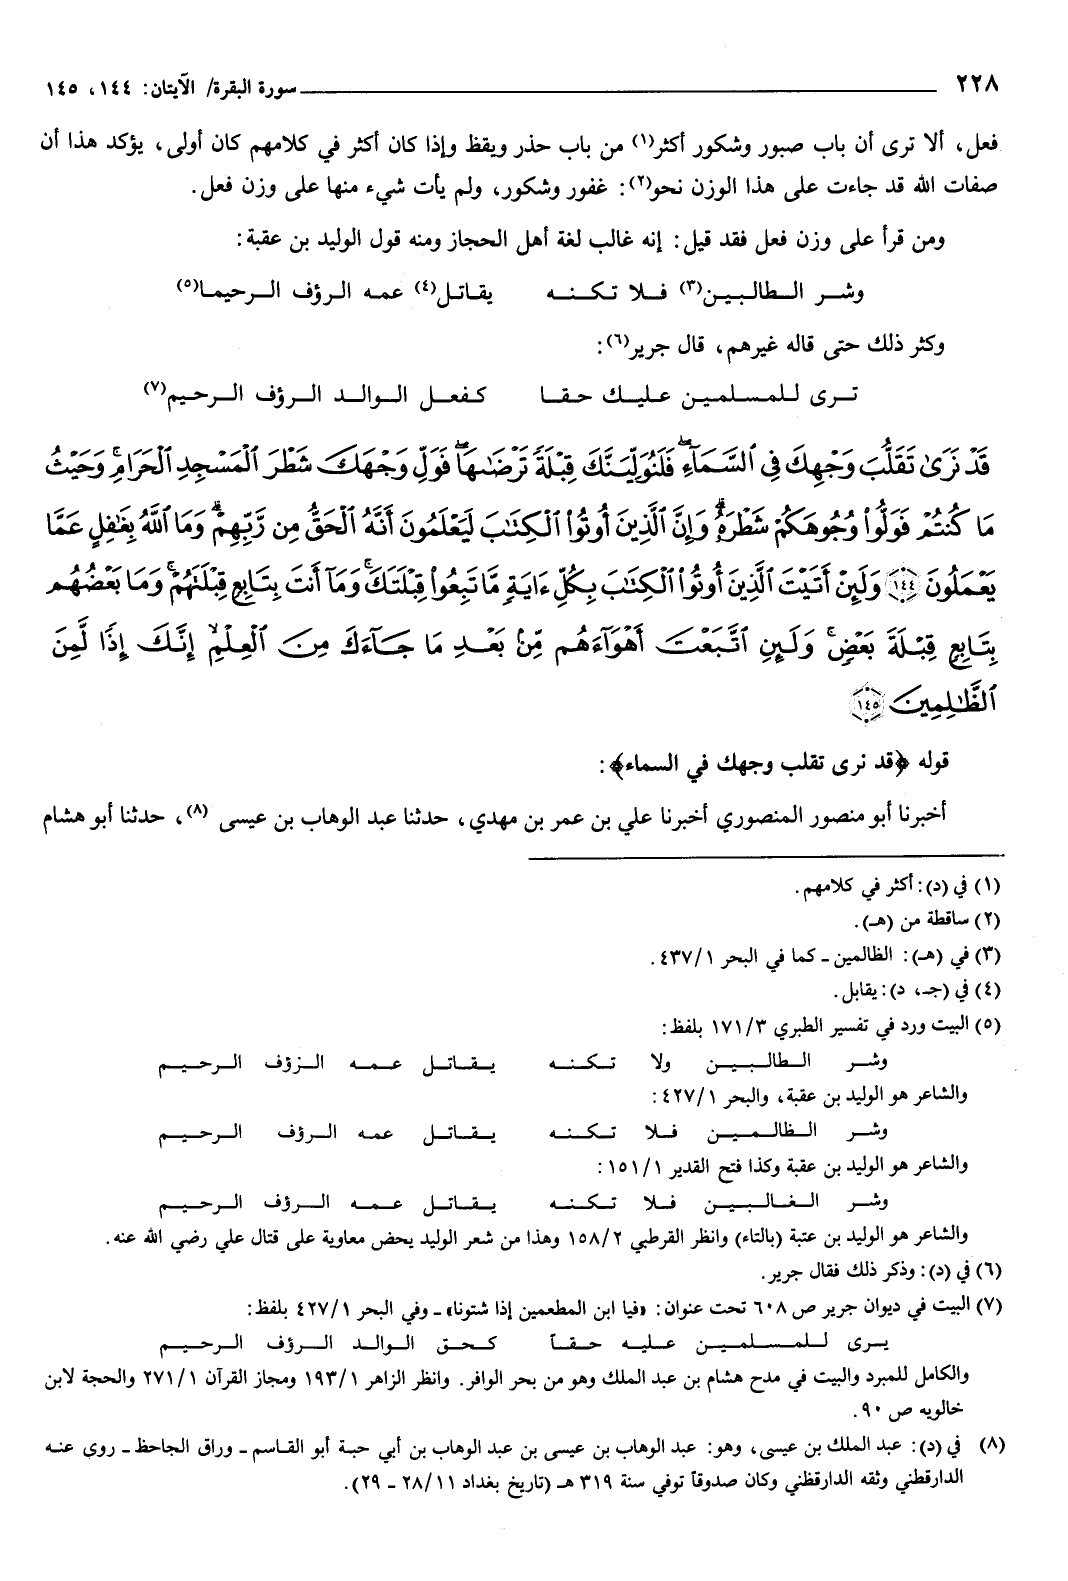 ٢٢٨ سورة البقرة/ الآيتان: ١٤٤، ١٤٥
فعل، ألا ترى أن باب صبور وشكور أكثر(١) من باب حذر ويقظ وإذا كان أكثر في كلامهم كان أولى، يؤكد هذا أن
صفات الله قد جاءت على هذا الوزن نحو(٢): غفور وشكور، ولم يأت شيء منها على وزن فعل.
ومن قرأ على وزن فعل فقد قيل: إنه غالب لغة أهل الحجاز ومنه قول الوليد بن عقبة:
وشر الطالبين(٣) فلا تكنه يقاتل(٤) عمه الرؤف الرحيما(٥)
وكثر ذلك حتى قاله غيرهم، قال جرير(٦):
ترى للمسلمين عليك حقا كفعل الوالد الرؤف الرحيم(٧)
قَدْ نَرَىٰ تَقَلُّبَ وَجْهِكَ فِي ٱلسَّمَآءِۖ فَلَنُوَلِّيَنَّكَ قِبْلَةً تَرْضَىٰهَاۚ فَوَلِّ وَجْهَكَ شَطْرَ ٱلْمَسْجِدِ ٱلْحَرَامِۚ وَحَيْثُ
مَا كُنتُمْ فَوَلُّوا۟ وُجُوهَكُمْ شَطْرَهُۥۗ وَإِنَّ ٱلَّذِينَ أُوتُوا۟ ٱلْكِتَٰبَ لَيَعْلَمُونَ أَنَّهُ ٱلْحَقُّ مِن رَّبِّهِمْۗ وَمَا ٱللَّهُ بِغَٰفِلٍ عَمَّا
يَعْمَلُونَ ١٤٤ وَلَئِنْ أَتَيْتَ ٱلَّذِينَ أُوتُوا۟ ٱلْكِتَٰبَ بِكُلِّ ءَايَةٍ مَّا تَبِعُوا۟ قِبْلَتَكَۚ وَمَآ أَنتَ بِتَابِعٍ قِبْلَتَهُمْۚ وَمَا بَعْضُهُم
بِتَابِعٍ قِبْلَةَ بَعْضٍۚ وَلَئِنِ ٱتَّبَعْتَ أَهْوَآءَهُم مِّنۢ بَعْدِ مَا جَآءَكَ مِنَ ٱلْعِلْمِۙ إِنَّكَ إِذًا لَّمِنَ
ٱلظَّٰلِمِينَ ١٤٥
قوله ﴿قد نرى تقلب وجهك في السماء﴾:
أخبرنا أبو منصور المنصوري أخبرنا علي بن عمر بن مهدي، حدثنا عبد الوهاب بن عيسى (٨)، حدثنا أبو هشام
(١) في (د): أكثر في كلامهم.
(٢) ساقطة من (هـ).
(٣) في (هـ): الظالمين - كما في البحر ٤٣٧/١.
(٤) في (جـ، د): يقابل.
(٥) البيت ورد في تفسير الطبري ١٧١/٣ بلفظ:
وشر الطالبين ولا تكنه يقاتل عمه الرؤف الرحيم
والشاعر هو الوليد بن عقبة، والبحر ٤٢٧/١:
وشر الظالمين فلا تكنه يقاتل عمه الرؤف الرحيم
والشاعر هو الوليد بن عقبة وكذا فتح القدير ١٥١/١:
وشر الغالبين فلا تكنه يقاتل عمه الرؤف الرحيم
والشاعر هو الوليد بن عتبة (بالتاء) وانظر القرطبي ١٥٨/٢ وهذا من شعر الوليد يحض معاوية على قتال علي رضي الله عنه.
(٦) في (د): وذكر ذلك فقال جرير.
(٧) البيت في ديوان جرير ص ٦٠٨ تحت عنوان: «فيا ابن المطعمين إذا شتونا» - وفي البحر ٤٢٧/١ بلفظ:
يرى للمسلمين عليه حقاً كحق الوالد الرؤف الرحيم
والكامل للمبرد والبيت في مدح هشام بن عبد الملك وهو من بحر الوافر. وانظر الزاهر ١٩٣/١ ومجاز القرآن ٢٧١/١ والحجة لابن
خالويه ص ٩٠.
(٨) في (د): عبد الملك بن عيسى، وهو: عبد الوهاب بن عيسى بن عبد الوهاب بن أبي حبة أبو القاسم - وراق الجاحظ - روى عنه
الدارقطني وثقه الدارقطني وكان صدوقاً توفي سنة ٣١٩ هـ (تاريخ بغداد ٢٨/١١ - ٢٩).